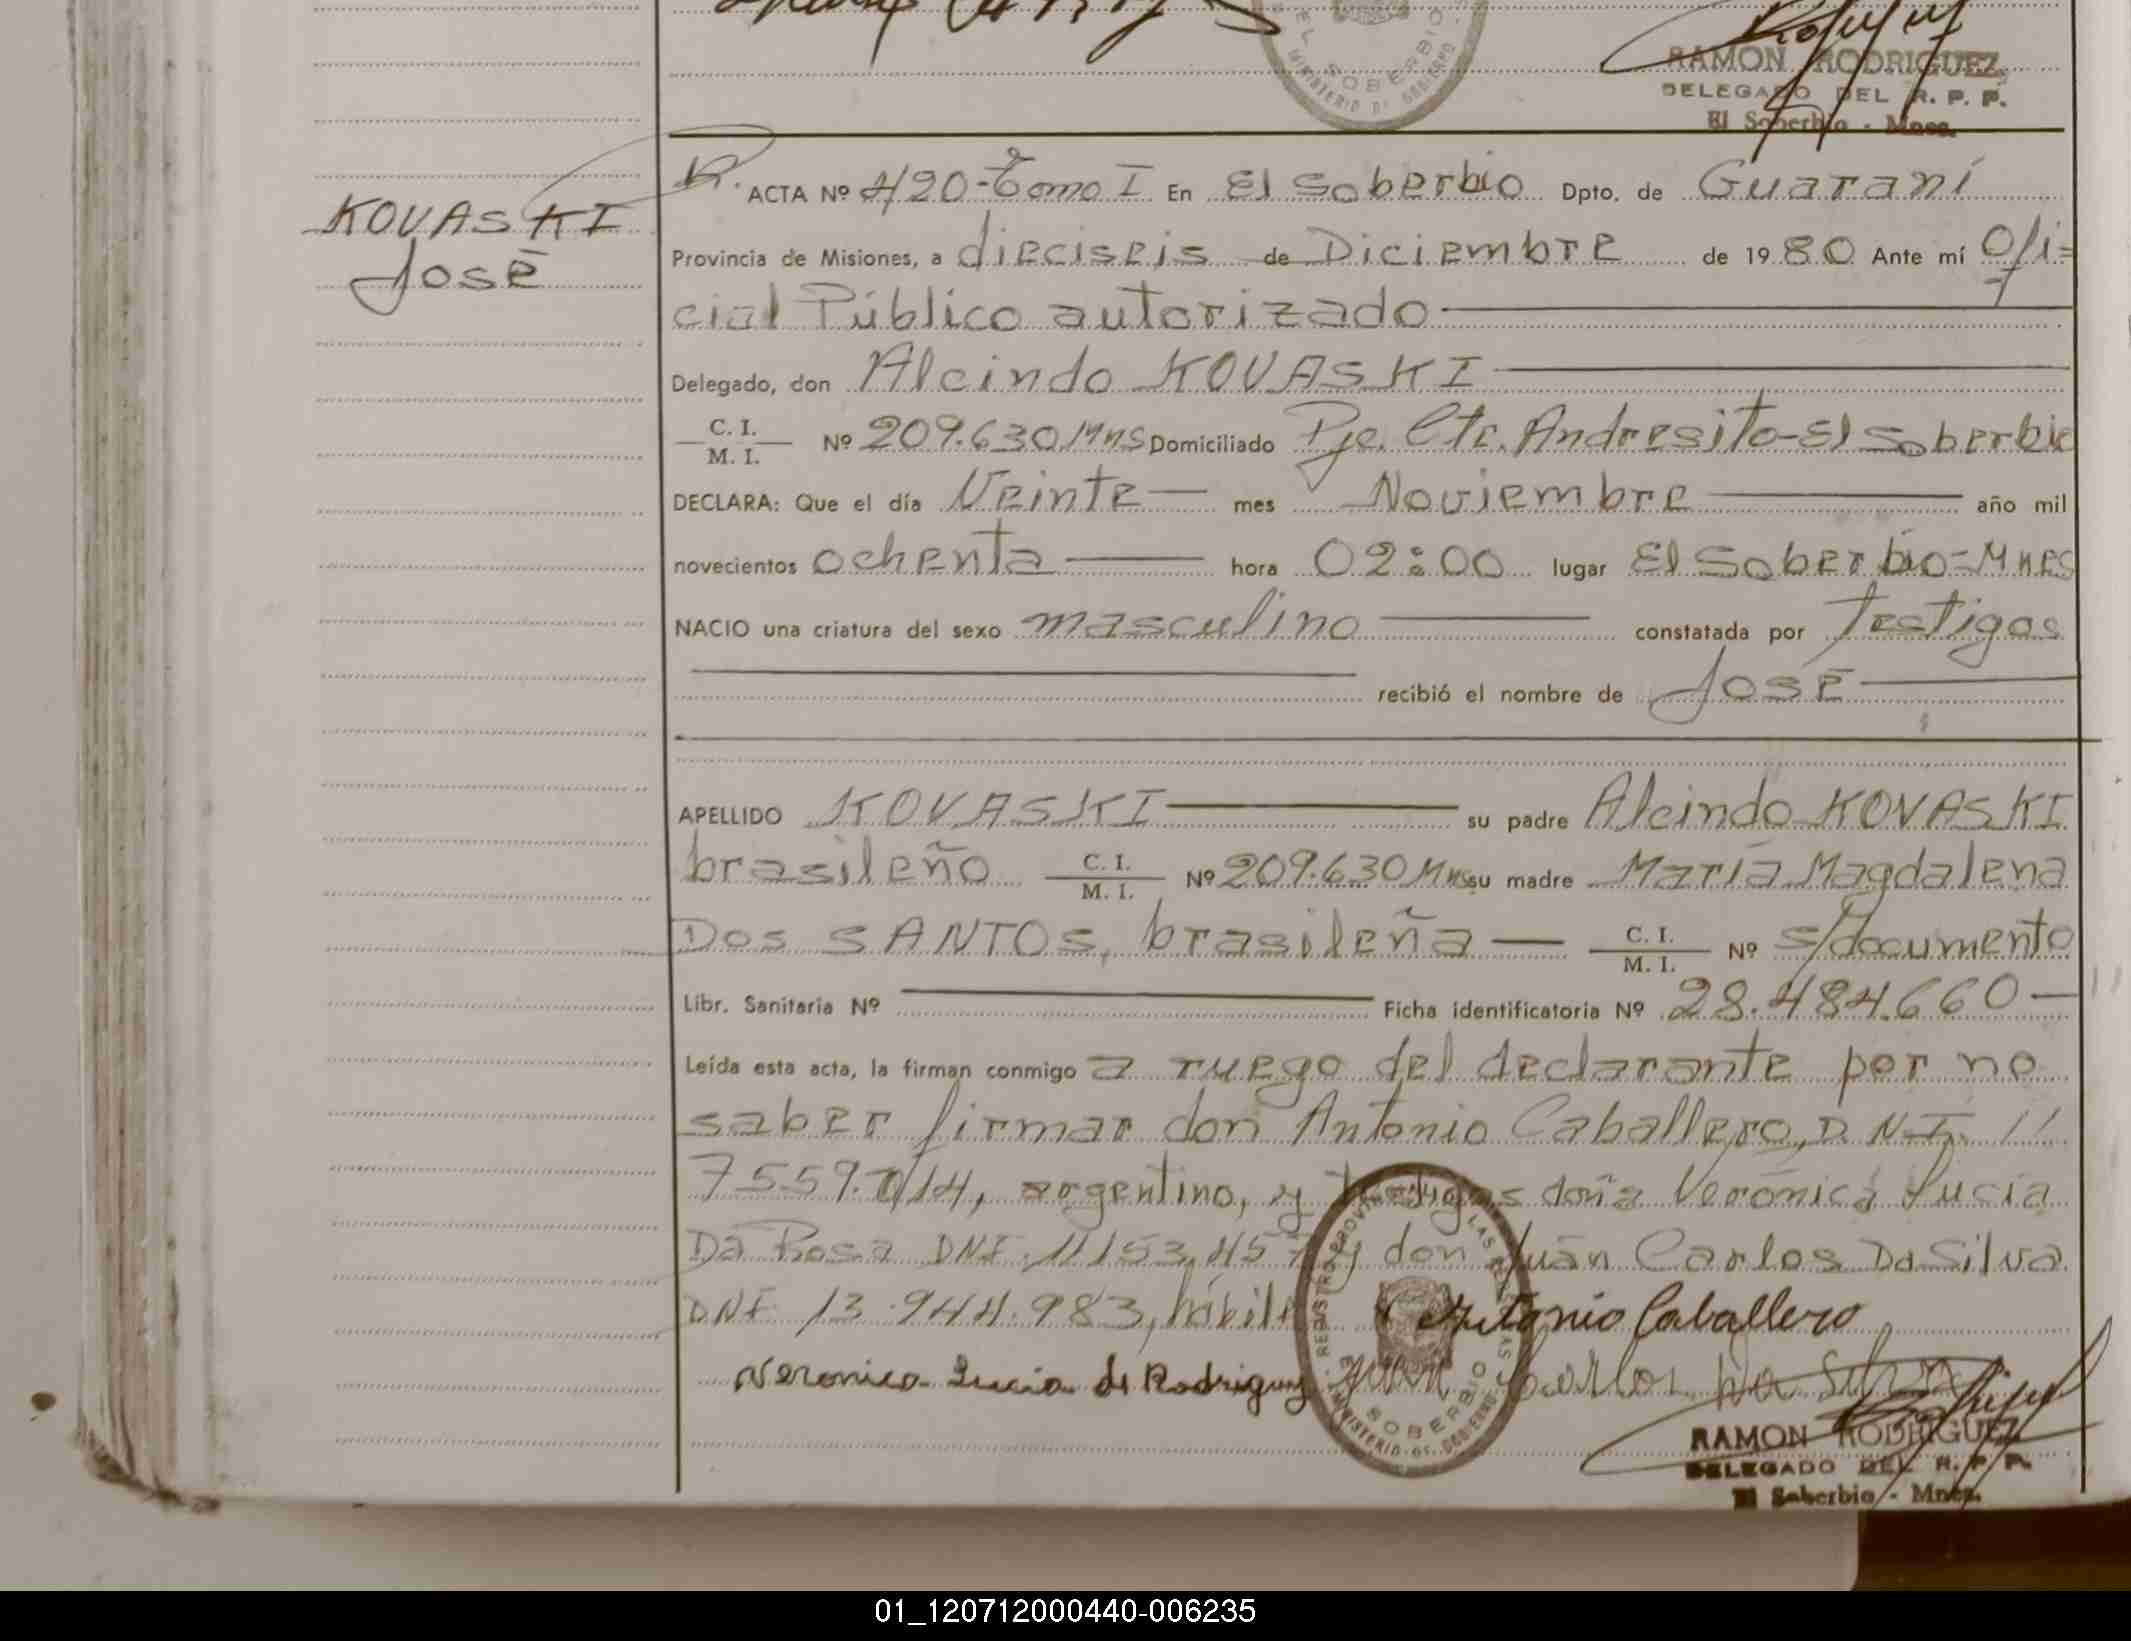 RAMON RODRIGUEZ
DELEGADO DEL R. P. P.
El Soberbio - Mnes.
SOBERBIO
MINISTERIO DE GOBIERNO
KOVASKI
José
ACTA Nº 420-Tomo I En El Soberbio Dpto. de Guaraní
Provincia de Misiones, a dieciseis de Diciembre de 1980 Ante mí Ofi=
cial Público autorizado
Delegado, don Alcindo KOVASKI
C. I. / M. I. Nº 209.630 Mns Domiciliado Pje. Cte. Andresito-El Soberbio
DECLARA: Que el día Veinte mes Noviembre año mil
novecientos ochenta hora 02:00 lugar El Soberbio=Mnes
NACIO una criatura del sexo masculino constatada por Testigos
recibió el nombre de José
APELLIDO KOVASKI su padre Alcindo KOVASKI
brasileño C. I. / M. I. Nº 209.630 Mns su madre María Magdalena
Dos SANTOS, brasileña C. I. / M. I. Nº s/documento
Libr. Sanitaria Nº Ficha identificatoria Nº 28.484.660
Leída esta acta, la firman conmigo a ruego del declarante por no
saber firmar don Antonio Caballero, D.N.I.
7559.014, argentino, y testigos doña Verónica Lucía
Da Rosa DNI. 11153.457 y don Juán Carlos Da Silva
DNI 13.944.983, hábiles
Antonio Caballero
Veronica Lucia de Rodriguez Juan Carlos Da Silva
SOBERBIO
MINISTERIO DE GOBIERNO
RAMON RODRIGUEZ
DELEGADO DEL R. P. P.
El Soberbio - Mnes.
01_120712000440-006235